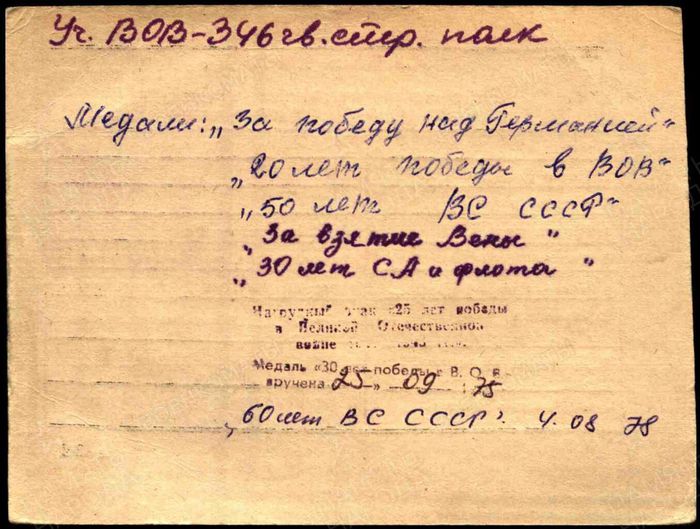 Уч. ВОВ-346 гв. стр. полк
Медали: „За победу над Германией"
„20 лет победы в ВОВ"
„50 лет ВС СССР"
„За взятие Вены"
„30 лет СА и флота"
Нагрудный знак «25 лет победы
в Великой Отечественной
войне
Медаль «30 лет победы в В. О. В.
вручена 25 » 09 75
„60 лет ВС СССР". 4. 08 78